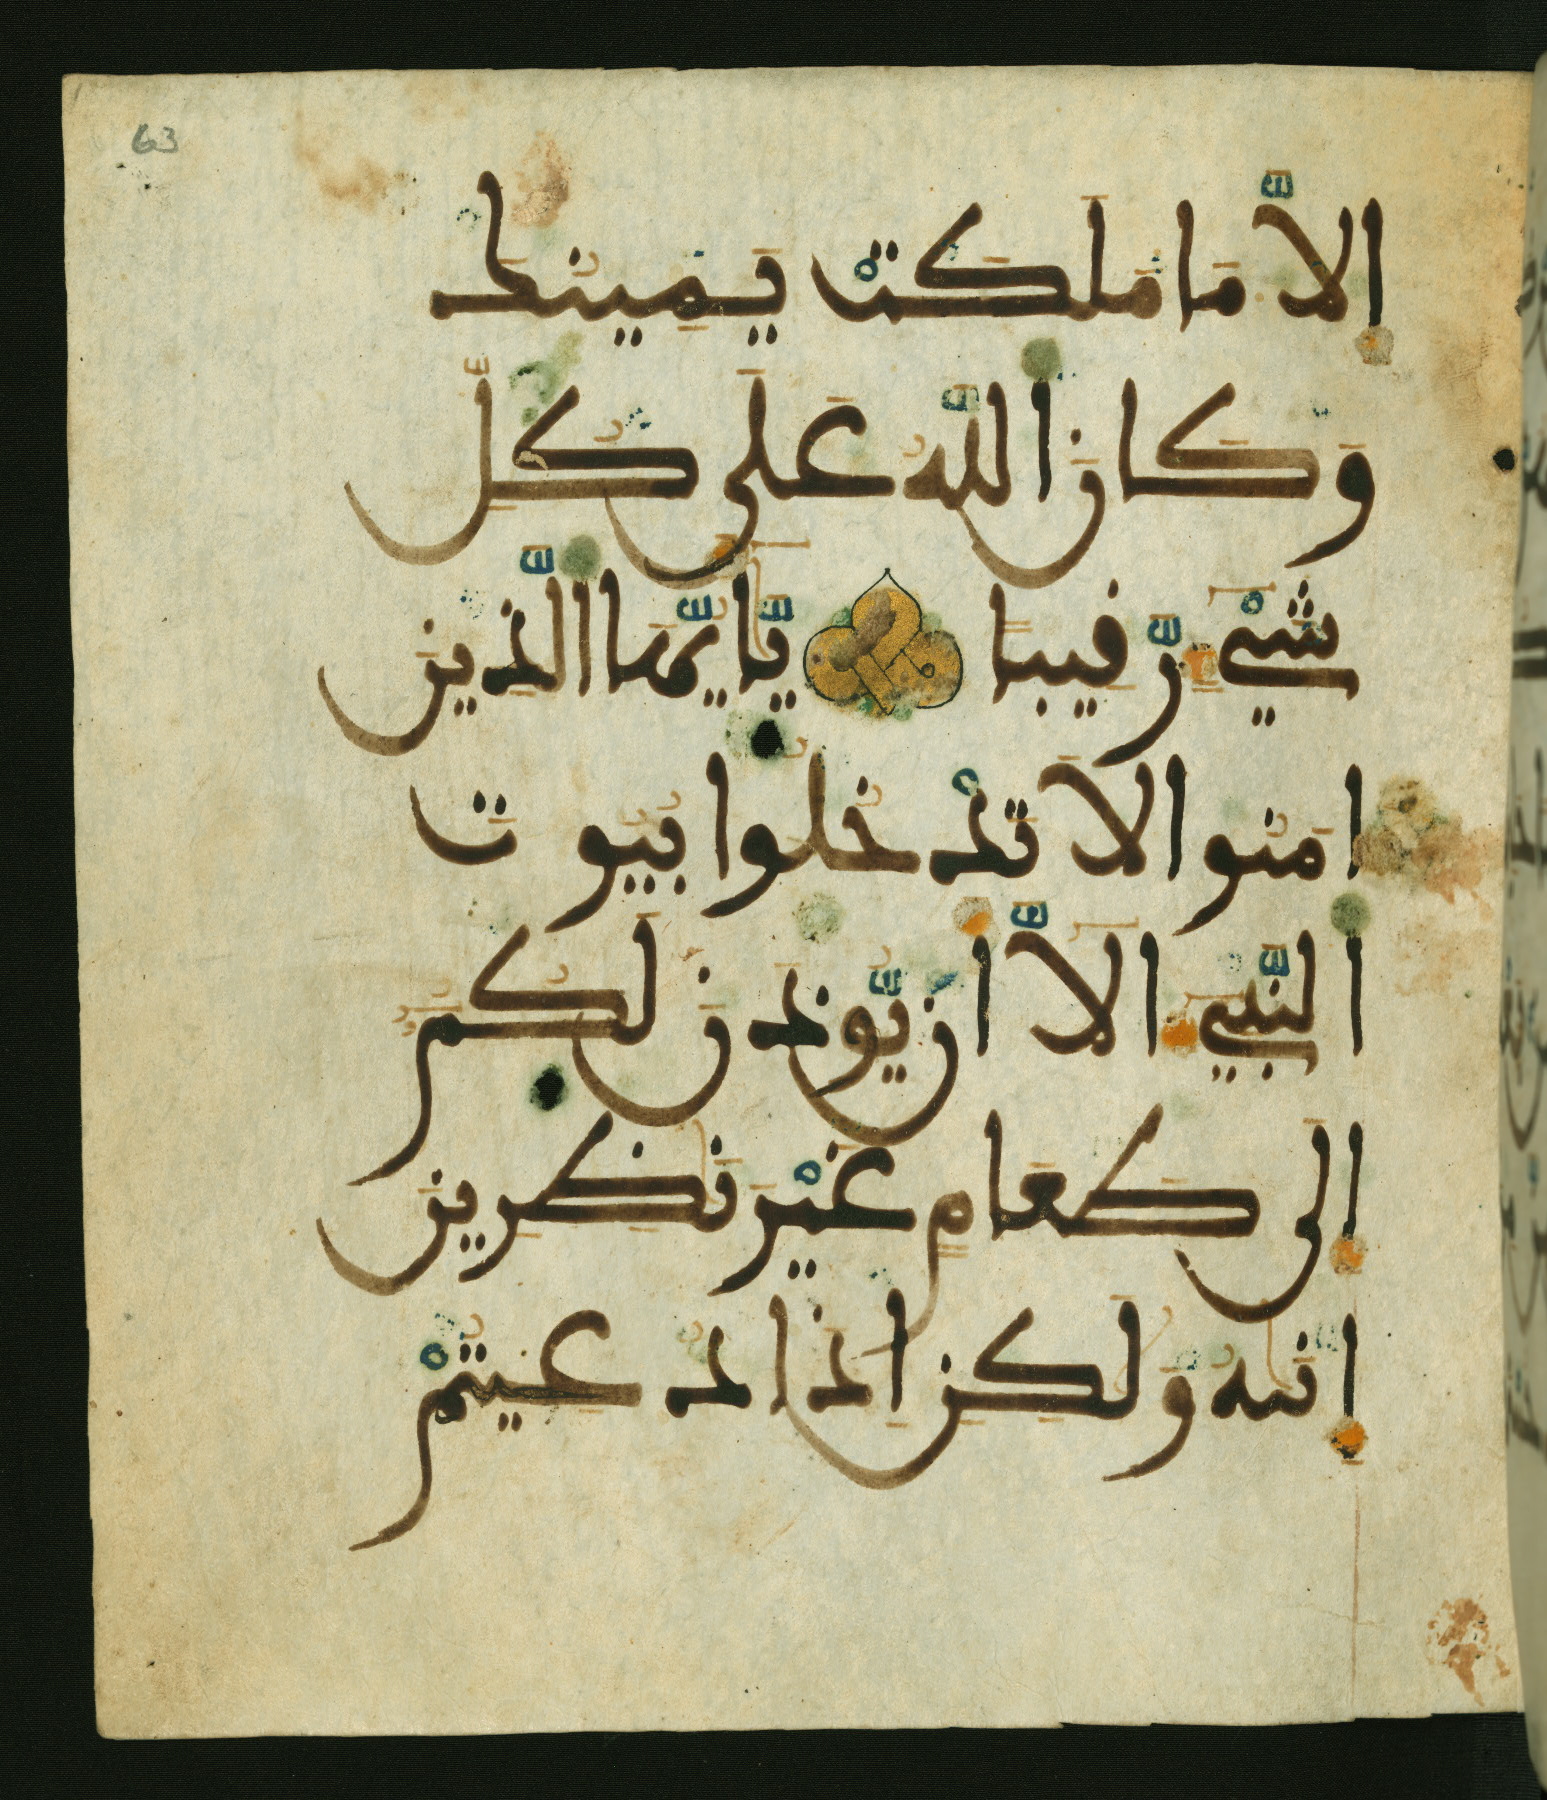 63
اِلَّا مَا مَلَكَتْ يَمِينُكَ
وَكَانَ اللَّهُ عَلَى كُلِّ
شَيْءٍ رَّقِيباً يَٰٓأَيُّهَا الَّذِينَ
ءَامَنُوا لَا تَدْخُلُوا بُيُوتَ
النَّبِيٓءِ الَّآ أَنْ يُّوذَنَ لَكُمُۥٓ
إِلَى طَعَامٍ غَيْرَ نَٰظِرِينَ
إِنَٰهُ وَلَٰكِنِ اِذَا دُعِيتُمْ